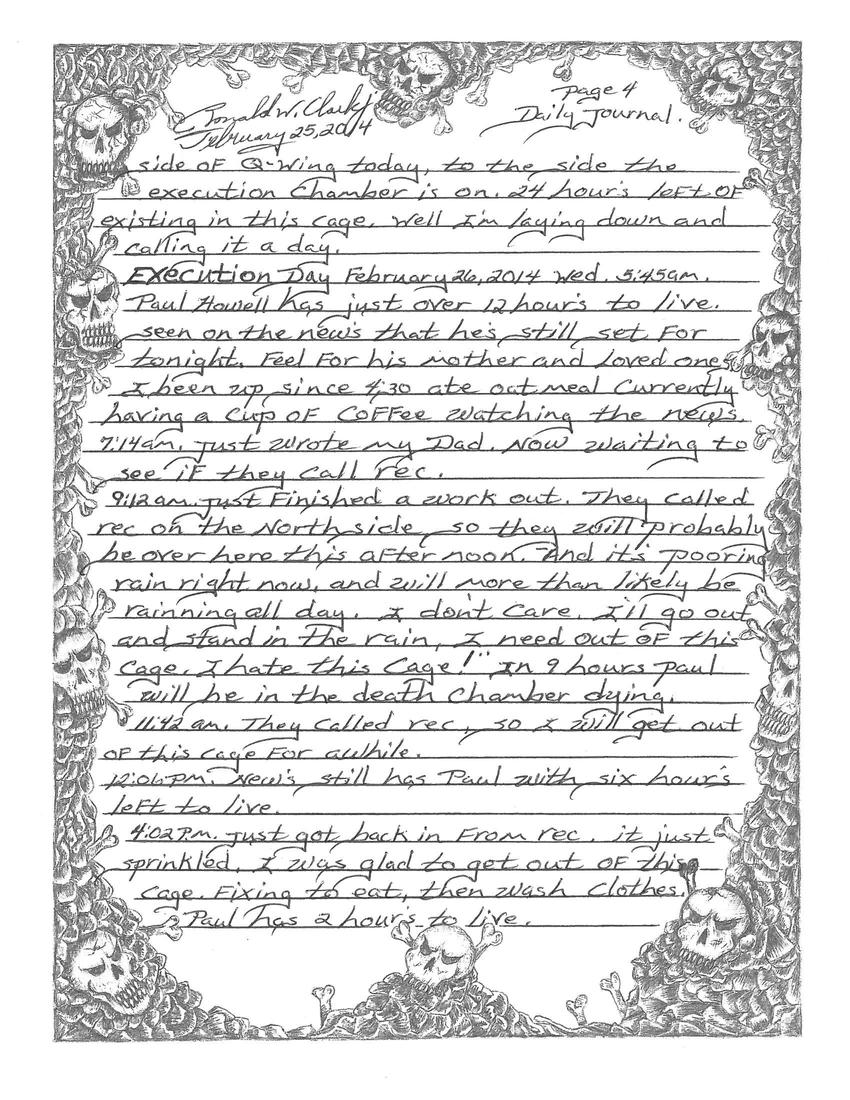 Ronald W. Clark Jr
February 25, 2014
page 4
Daily Journal.
side of Q-Wing today, to the side the
execution Chamber is on. 24 hour's left of
existing in this cage. Well I'm laying down and
calling it a day.
Execution Day February 26, 2014 Wed. 5:45am.
Paul Howell has just over 12 hour's to live.
seen on the new's that he's still set For
tonight. Feel For his mother and loved ones
I been up since 4:30 ate oatmeal Currently
having a Cup of Coffee watching the new's.
7:14am. Just wrote my Dad. Now waiting to
see if they call rec.
9:12am. Just Finished a work out. They called
rec on the North side, so they will probably
be over here this after noon. And it's pooring
rain right now, and will more than likely be
rainning all day. I don't Care. I'll go out
and stand in the rain, I need out of this
Cage. I hate this Cage!" In 9 hours Paul
will be in the death Chamber dying.
11:42 am. They Called rec, so I will get out
of this cage For awhile.
12:06 PM. New's still has Paul with six hour's
left to live.
4:02 P.M. Just got back in From rec. it just
sprinkled. I was glad to get out of this
Cage. Fixing to eat, then wash Clothes.
Paul has 2 hour's to live.